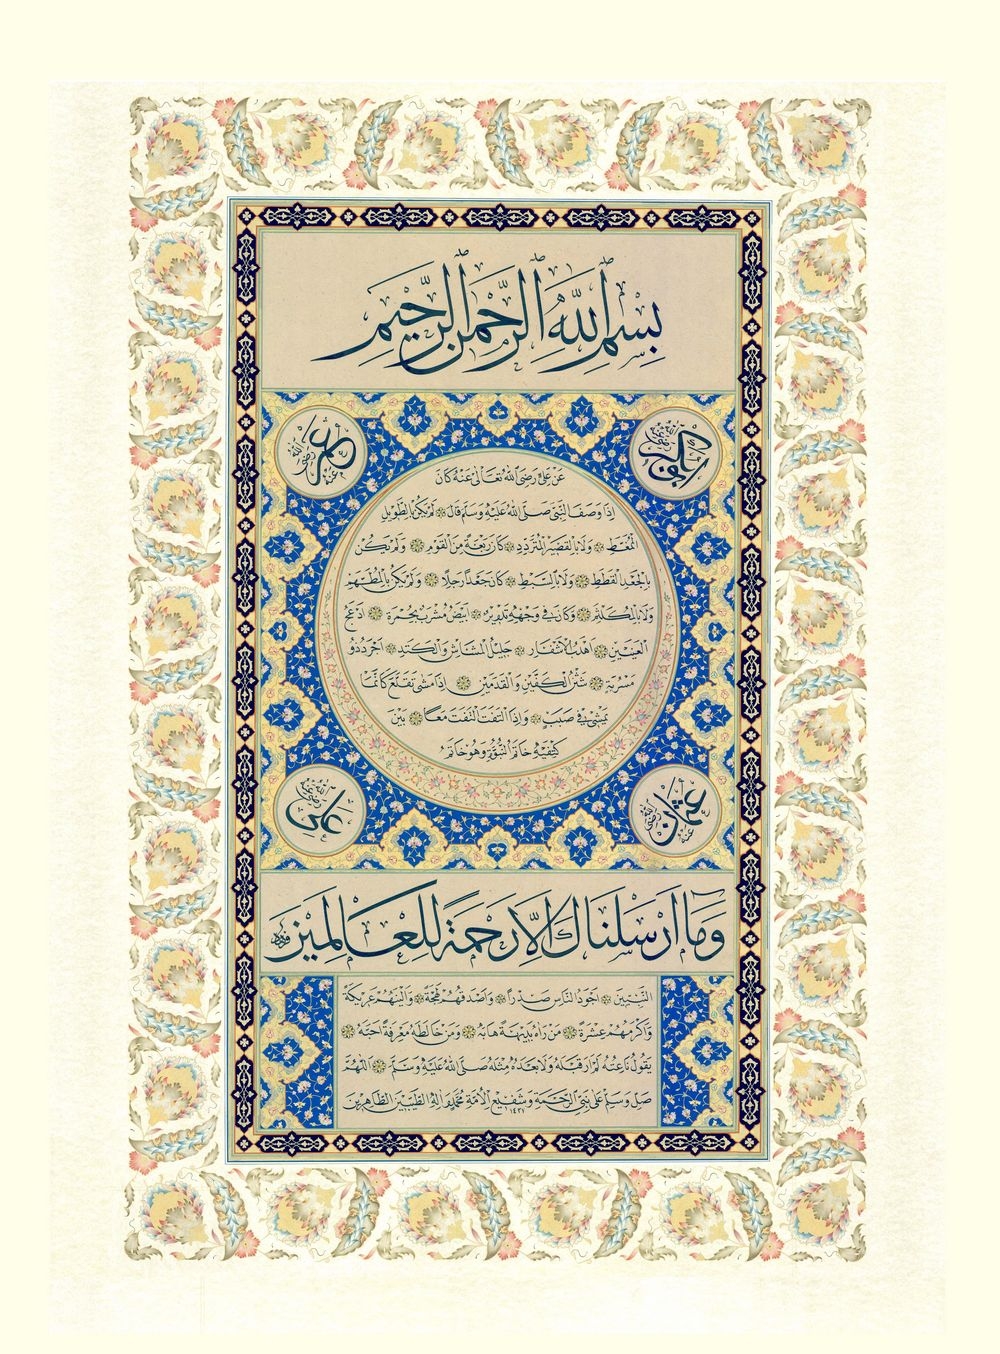 بِسْمِ اللَّهِ الرَّحْمَنِ الرَّحِيمِ
ابوبكر رضي الله عنه
عمر رضي الله عنه
عَنْ عَلِيٍّ رَضِيَ اللهُ تَعَالَى عَنْهُ كَانَ
اِذَا وَصَفَ النَّبِيَّ صَلَّى اللهُ عَلَيْهِ وَسَلَّمَ قَالَ لَمْ يَكُنْ بِالطَّوِيلِ
الْمُمَّغِطِ وَلَا بِالْقَصِيرِ الْمُتَرَدِّدِ كَانَ رَبْعَةً مِنَ الْقَوْمِ وَلَمْ يَكُنْ
بِالْجَعْدِ الْقَطَطِ وَلَا بِالسَّبِطِ كَانَ جَعْدًا رَجِلًا وَلَمْ يَكُنْ بِالْمُطَهَّمِ
وَلَا بِالْمُكَلْثَمِ وَكَانَ فِي وَجْهِهِ تَدْوِيرٌ اَبْيَضُ مُشْرَبٌ بِحُمْرَةٍ اَدْعَجُ
الْعَيْنَيْنِ اَهْدَبُ الْاَشْفَارِ جَلِيلُ الْمُشَاشِ وَالْكَتَدِ اَجْرَدُ ذُو
مَسْرُبَةٍ شَثْنُ الْكَفَّيْنِ وَالْقَدَمَيْنِ اِذَا مَشَى تَقَلَّعَ كَاَنَّمَا
يَمْشِي فِي صَبَبٍ وَاِذَا الْتَفَتَ الْتَفَتَ مَعًا بَيْنَ
كَتِفَيْهِ خَاتَمُ النُّبُوَّةِ وَهُوَ خَاتَمُ
عثمان رضي الله عنه
علي رضي الله عنه
وَمَا اَرْسَلْنَاكَ اِلَّا رَحْمَةً لِلْعَالَمِينَ
النَّبِيِّينَ اَجْوَدُ النَّاسِ صَدْرًا وَاَصْدَقُهُمْ لَهْجَةً وَاَلْيَنُهُمْ عَرِيكَةً
وَاَكْرَمُهُمْ عِشْرَةً مَنْ رَاٰهُ بَدِيهَةً هَابَهُ وَمَنْ خَالَطَهُ مَعْرِفَةً اَحَبَّهُ
يَقُولُ نَاعِتُهُ لَمْ اَرَ قَبْلَهُ وَلَا بَعْدَهُ مِثْلَهُ صَلَّى اللهُ عَلَيْهِ وَسَلَّمَ اَللّٰهُمَّ
صَلِّ وَسَلِّمْ عَلَى نَبِيِّ الرَّحْمَةِ وَشَفِيعِ الْاُمَّةِ مُحَمَّدٍ وَاٰلِهِ الطَّيِّبِينَ الطَّاهِرِينَ
١٤٢١